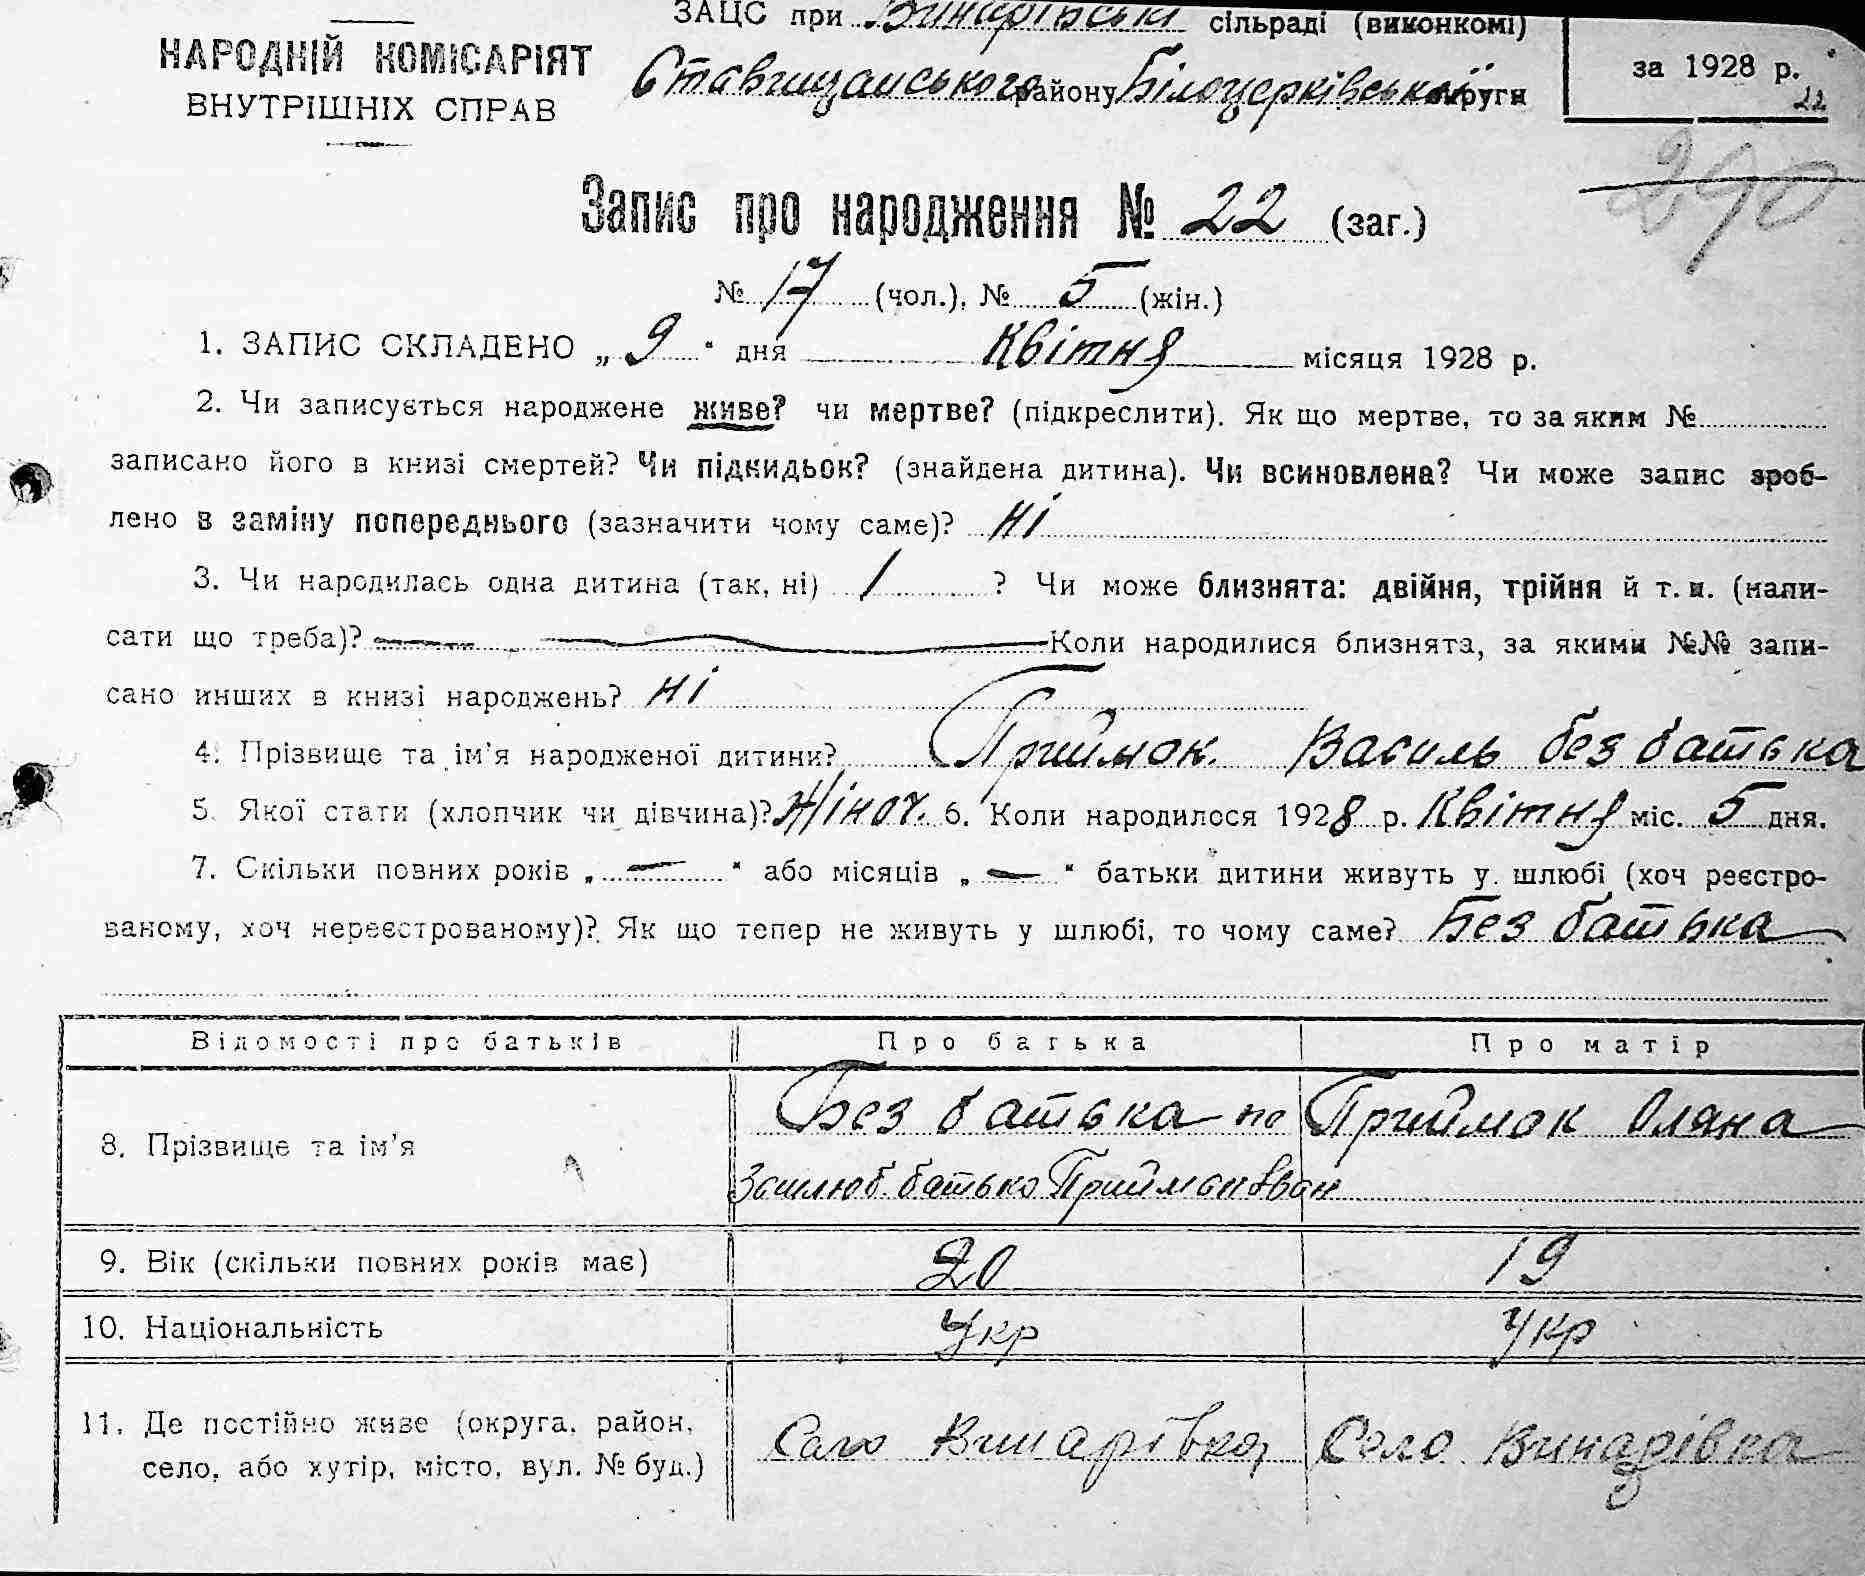 ЗАЦС при Винарівські сільраді (виконкомі)
НАРОДНІЙ КОМІСАРІЯТ
ВНУТРІШНІХ СПРАВ
Ставищанського району Білоцерківської округи
за 1928 р.
22
290
Запис про народження № 22 (заг.)
№ 17 (чол.), № 5 (жін.)
1. ЗАПИС СКЛАДЕНО „ 9 " дня Квітня місяця 1928 р.
2. Чи записується народжене живе? чи мертве? (підкреслити). Як що мертве, то за яким №
записано його в книзі смертей? Чи підкидьок? (знайдена дитина). Чи всиновлена? Чи може запис зроб-
лено в заміну попереднього (зазначити чому саме)? ні
3. Чи народилась одна дитина (так, ні) 1 ? Чи може близнята: двійня, трійня й т. и. (напи-
сати що треба)? Коли народилися близнята, за якими №№ запи-
сано инших в книзі народжень? ні
4. Прізвище та ім'я народженої дитини? Приймок. Василь без батька
5. Якої стати (хлопчик чи дівчина)? Жіноч. 6. Коли народилося 1928 р. Квітня міс. 5 дня.
7. Скільки повних років „ — " або місяців „ — " батьки дитини живуть у шлюбі (хоч реєстро-
ваному, хоч нереєстрованому)? Як що тепер не живуть у шлюбі, то чому саме? Без батька
Відомості про батьків Про батька Про матір
8. Прізвище та ім'я Без батька по Приймок Оляна
Зашлюб. батько Приймак Іван
9. Вік (скільки повних років має) 20 19
10. Національність Укр Укр
11. Де постійно живе (округа, район, село, або хутір, місто, вул. № буд.) Село Винарівка, Село Винарівка